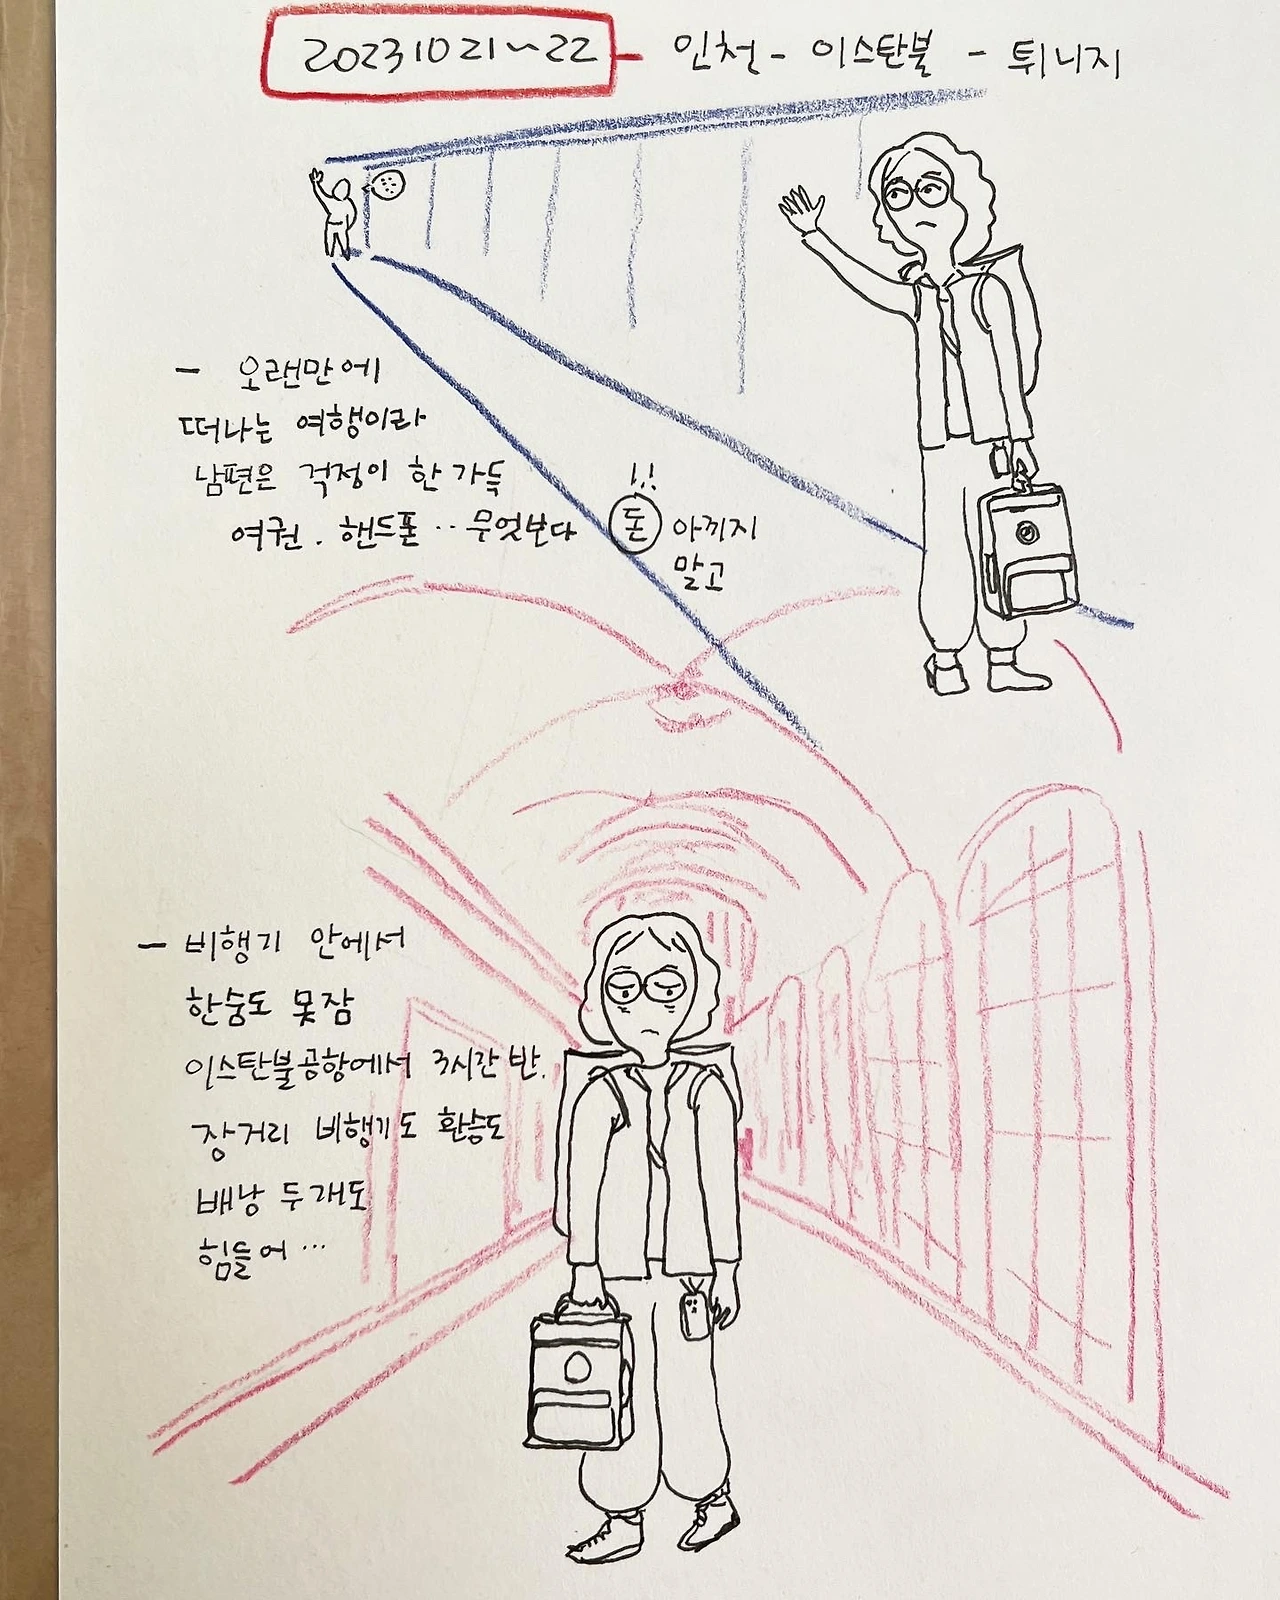 20231021~22 - 인천 - 이스탄불 - 튀니지
- 오랜만에
떠나는 여행이라
남편은 걱정이 한가득
여권. 핸드폰.. 무엇보다 돈!!! 아끼지
말고
- 비행기 안에서
한숨도 못잠
이스탄불공항에서 3시간 반.
장거리 비행기도 환승도
배낭 두개도
힘들어...